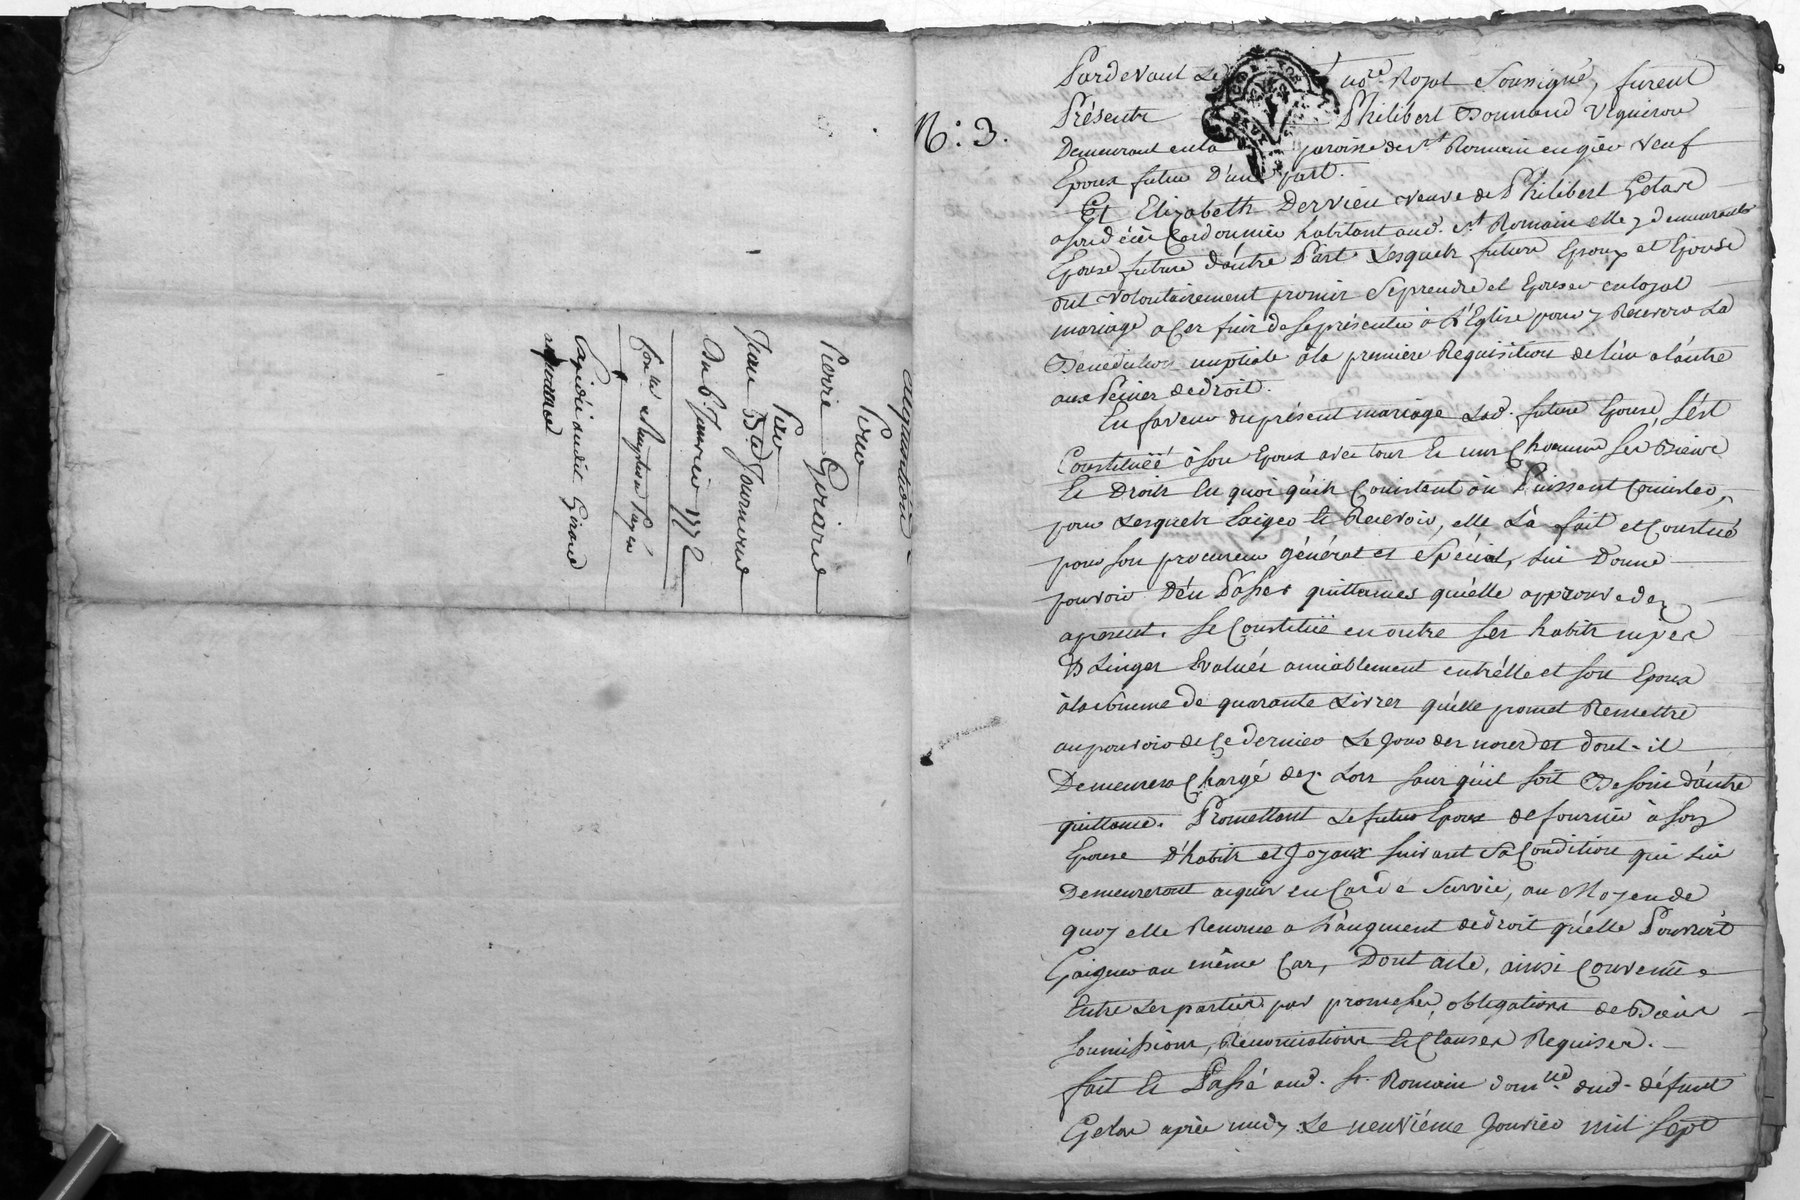 acquisition
Pour
Pierre Girard
Par
Jean Bd. Journoud
Du 6. Janvier 1772
Con.lle
Expédié audit Girard
N.o 3.
Pardevant Le no.re Royal soussigné, furent
Présents Philibert Bonnand Vigneron
Demeurant en la paroisse de St. Romain en gier veuf
Epoux futur D'une part.
Et Elizabeth Dervieu veuve de Philibert Gelas
a son décès Cordonnier habitant aud. St. Romain elle y demeurante
Epouse future d'autre Part. Lesquels futurs Epoux et Epouse
ont volontairement promis se prendre et Epouser en loyal
mariage a Ces fins de se présenter à L'Eglise pour y Recevoir La
Bénédiction nuptiale à la première Requisition de l'un a l'autre
aux Peines de droit.
En faveur du présent mariage Lad. future Epouse, s'est
Constituéé à son Epoux avec tous Et uns Chacuns ses Biens
Et Droits En quoi qu'ils Consistent ou Puissent Consister,
pour Lesquels Exiger Et Recevoir, elle L'a fait et Constitué
pour son procureur général et spécial, lui Donne
pouvoir D'en Passer quittances qu'elle approuve dez
apresent. Se Constitüe en outre ses habits nipes
& Linges Evalués amiablement entr'elle et son Epoux
à la somme de quarante Livres qu'elle promet Remettre
au pouvoir de Ce dernier Le Jour des noces et dont-il
Demeurera Chargé dez. Lors sans qu'il soit Besoin d'autre
quittance. Promettant Le futur Epoux de fournir à son
Epouse d'habits et Joyaux suivant sa Condition qui lui
Demeureront acquis en Cas de survie, au Moyen de
quoy elle Renonce a L'augment de droit qu'elle Pourroit
Gaigner au même Cas, Dont acte, ainsi Convenu
Entre Les parties par promesses, obligations de Biens
soumissions, Renonciations Et Clauses Requises.
fait Et Passé aud. St. Romain dom.lle dud. défunt
Gelas après midy Le neuvième Janvier mil sept